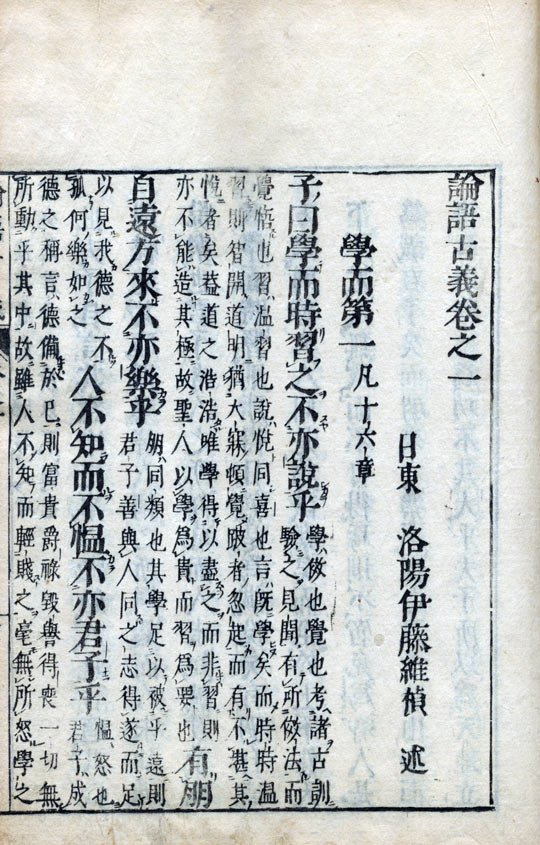 論語古義卷之一
日東 洛陽伊藤維楨 述
學而第一 凡十六章
子曰學而時習之不亦說乎
學傚也覺也考諸古訓
驗之見聞有所傚法而
覺悟也習温習也說悅同喜也言旣學矣而時時温
習則智開道明猶大寐頓覺跛者忽起而有不堪其
悅者矣葢道之浩浩唯學得以盡之而非習則
亦不能造其極故聖人以學爲貴而習爲要也
有朋
自遠方來不亦樂乎
朋同類也其學足以被乎遠則
君子善與人同之志得遂而足
以見我德之不
孤何樂如之
人不知而不慍不亦君子乎
慍怒也
君子成
德之稱言德備於己則富貴爵祿毀譽得喪一切無
所動乎其中故雖人不知而輕賤之毫無所怒學之